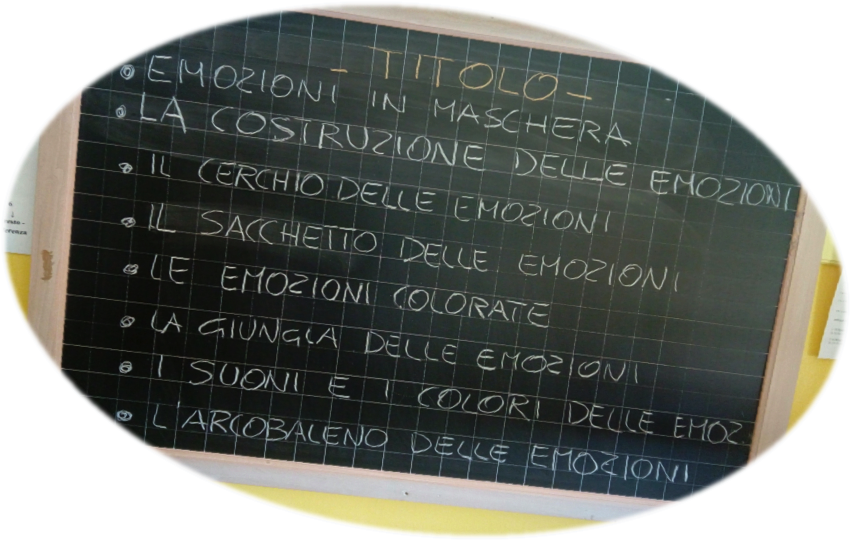 - TITOLO -
EMOZIONI IN MASCHERA
LA COSTRUZIONE DELLE EMOZIONI
IL CERCHIO DELLE EMOZIONI
IL SACCHETTO DELLE EMOZIONI
LE EMOZIONI COLORATE
LA GIUNGLA DELLE EMOZIONI
I SUONI E I COLORI DELLE EMOZ.
L'ARCOBALENO DELLE EMOZIONI